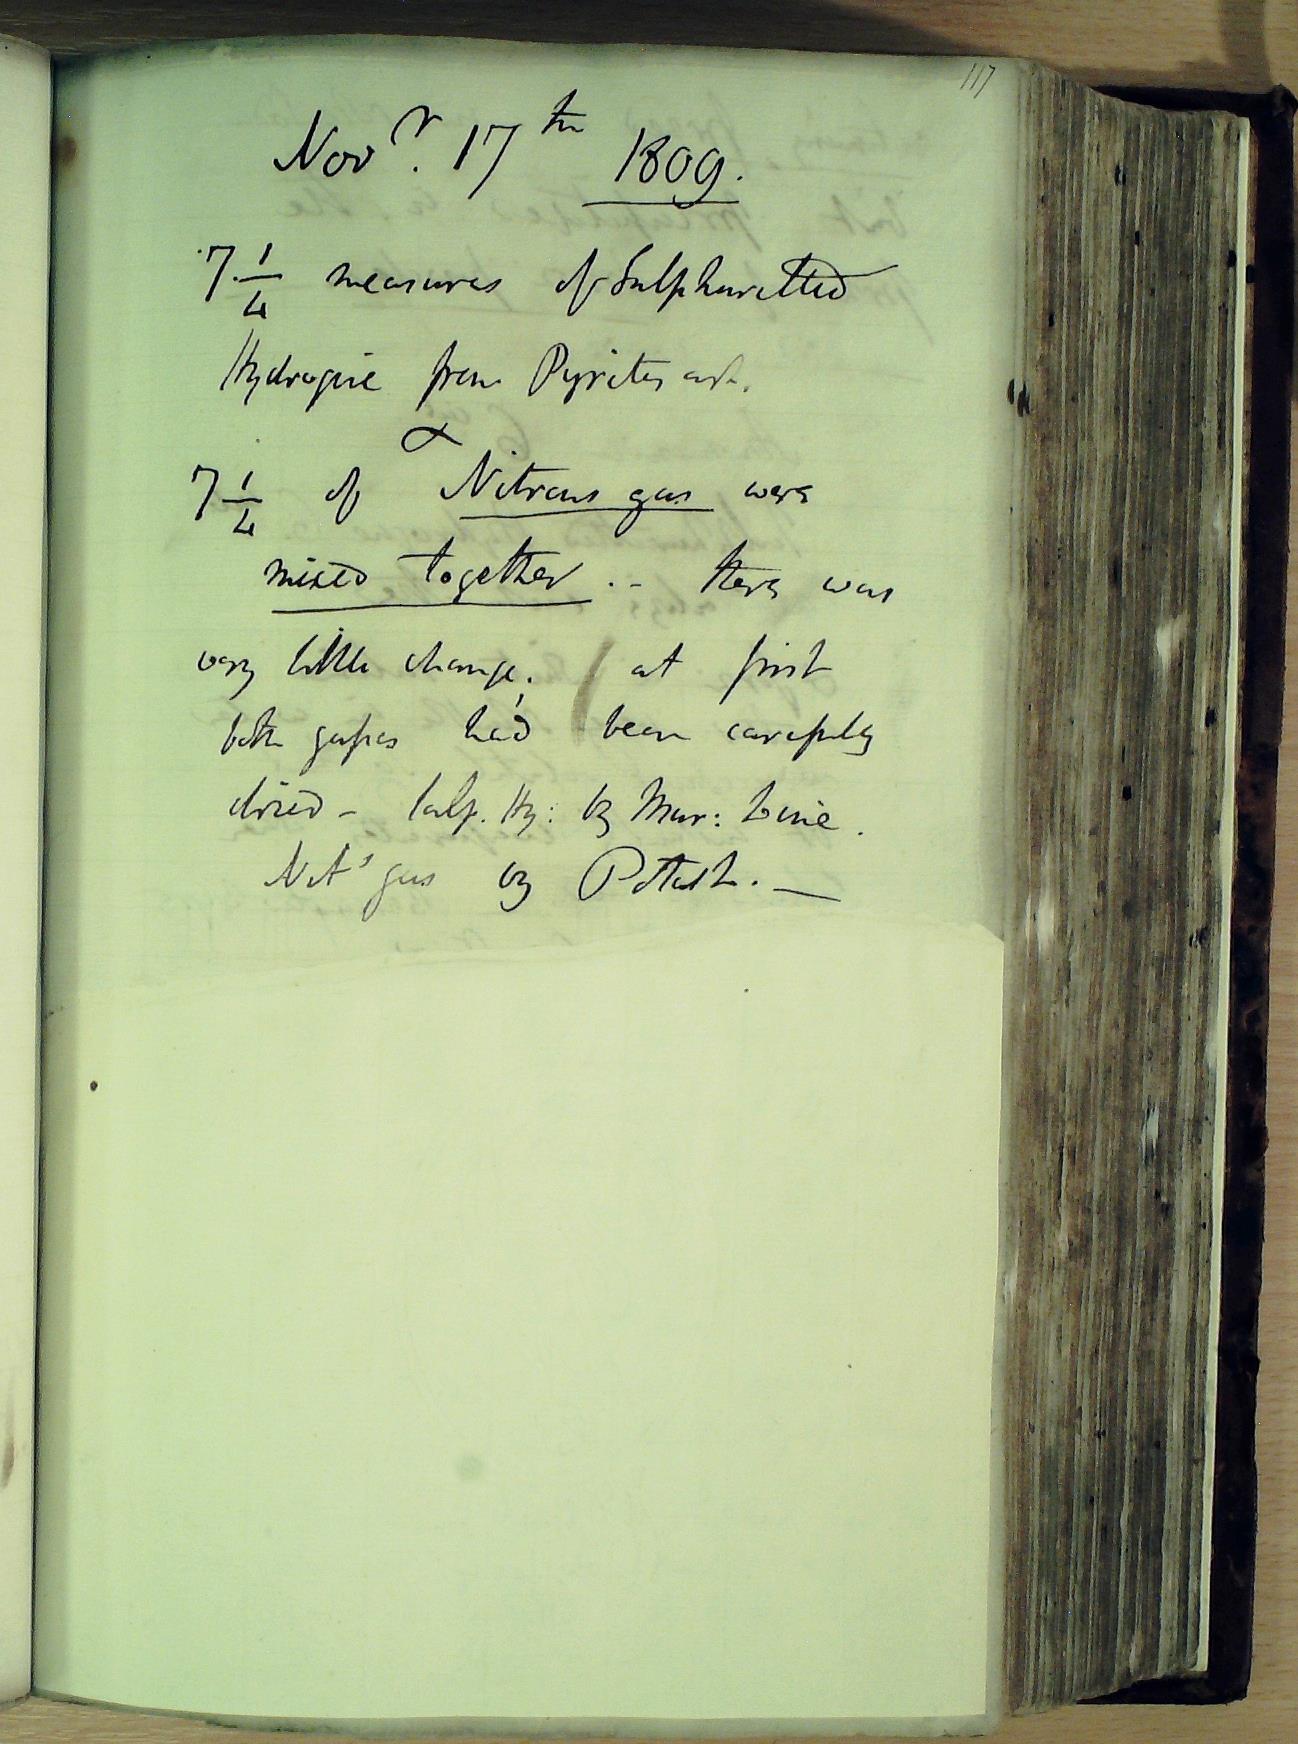 117
Novr. 17th 1809.
7 1/4 measures of Sulphuretted
Hydrogene from Pyrites art.
&
7 1/4 of Nitrous gas were
mixed together .- there was
very little change; at first
both gasses had been carefully
dried - Sulp. Hy: by Mur: Lime.
Nits gas by Potash. —